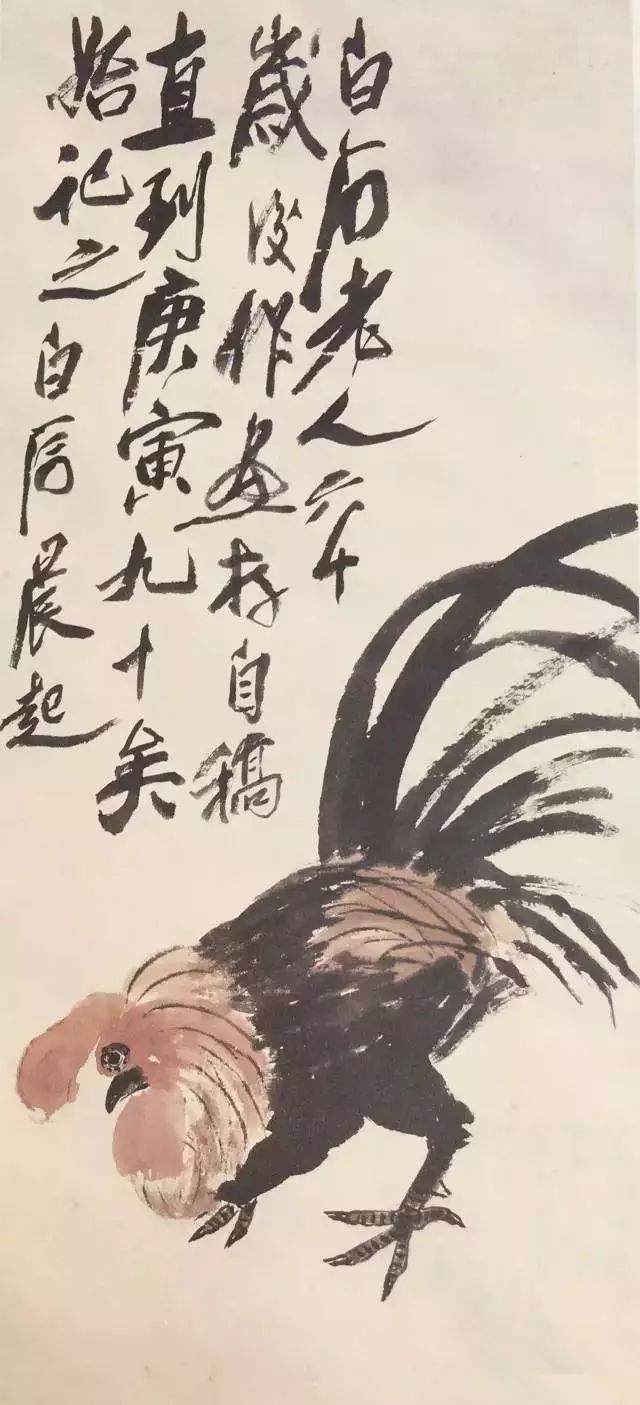 白石老人六十
歲後作画存自稿
直到庚寅九十矣
始記之白石晨起